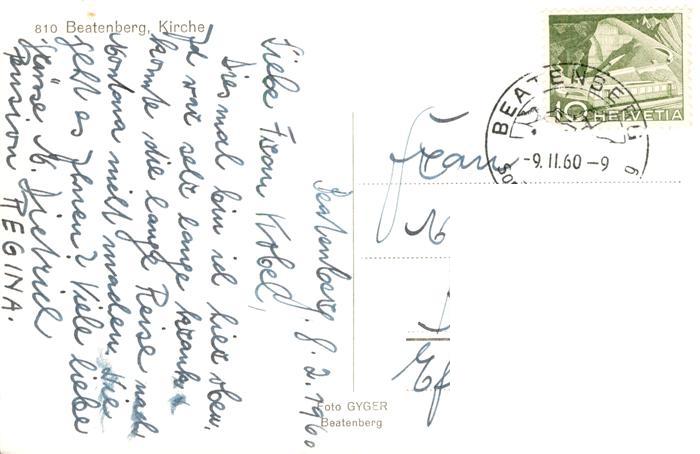 810 Beatenberg, Kirche
Beatenberg, 8.2.1960
Liebe Frau Kobel,
Diesmal bin ich hier oben,
Ich war sehr lange krank &
konnte die lange Reise nach
Montana nicht machen. Wie
geht es Ihnen? Viele liebe
Grüsse M. Dietrich
Pension REGINA.
HELVETIA
10
BEATENBERG
-9.II.60-9
Frau
Foto GYGER
Beatenberg